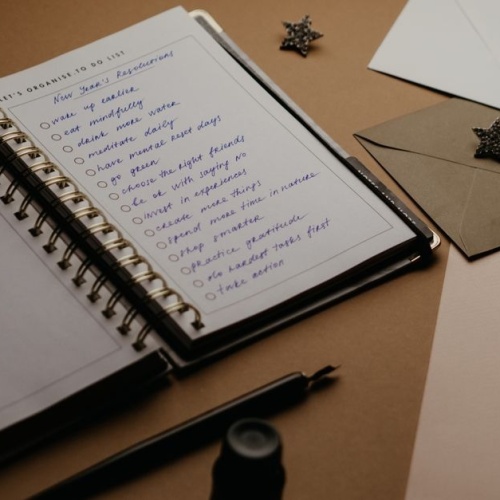 LET'S ORGANISE. TO DO LIST
New Year's Resolutions
wake up earlier
eat mindfully
drink more water
meditate daily
have mental rest days
go green
choose the right friends
be ok with saying NO
invest in experiences
create more things
spend more time in nature
shop smarter
practice gratitude
do hardest tasks first
take action